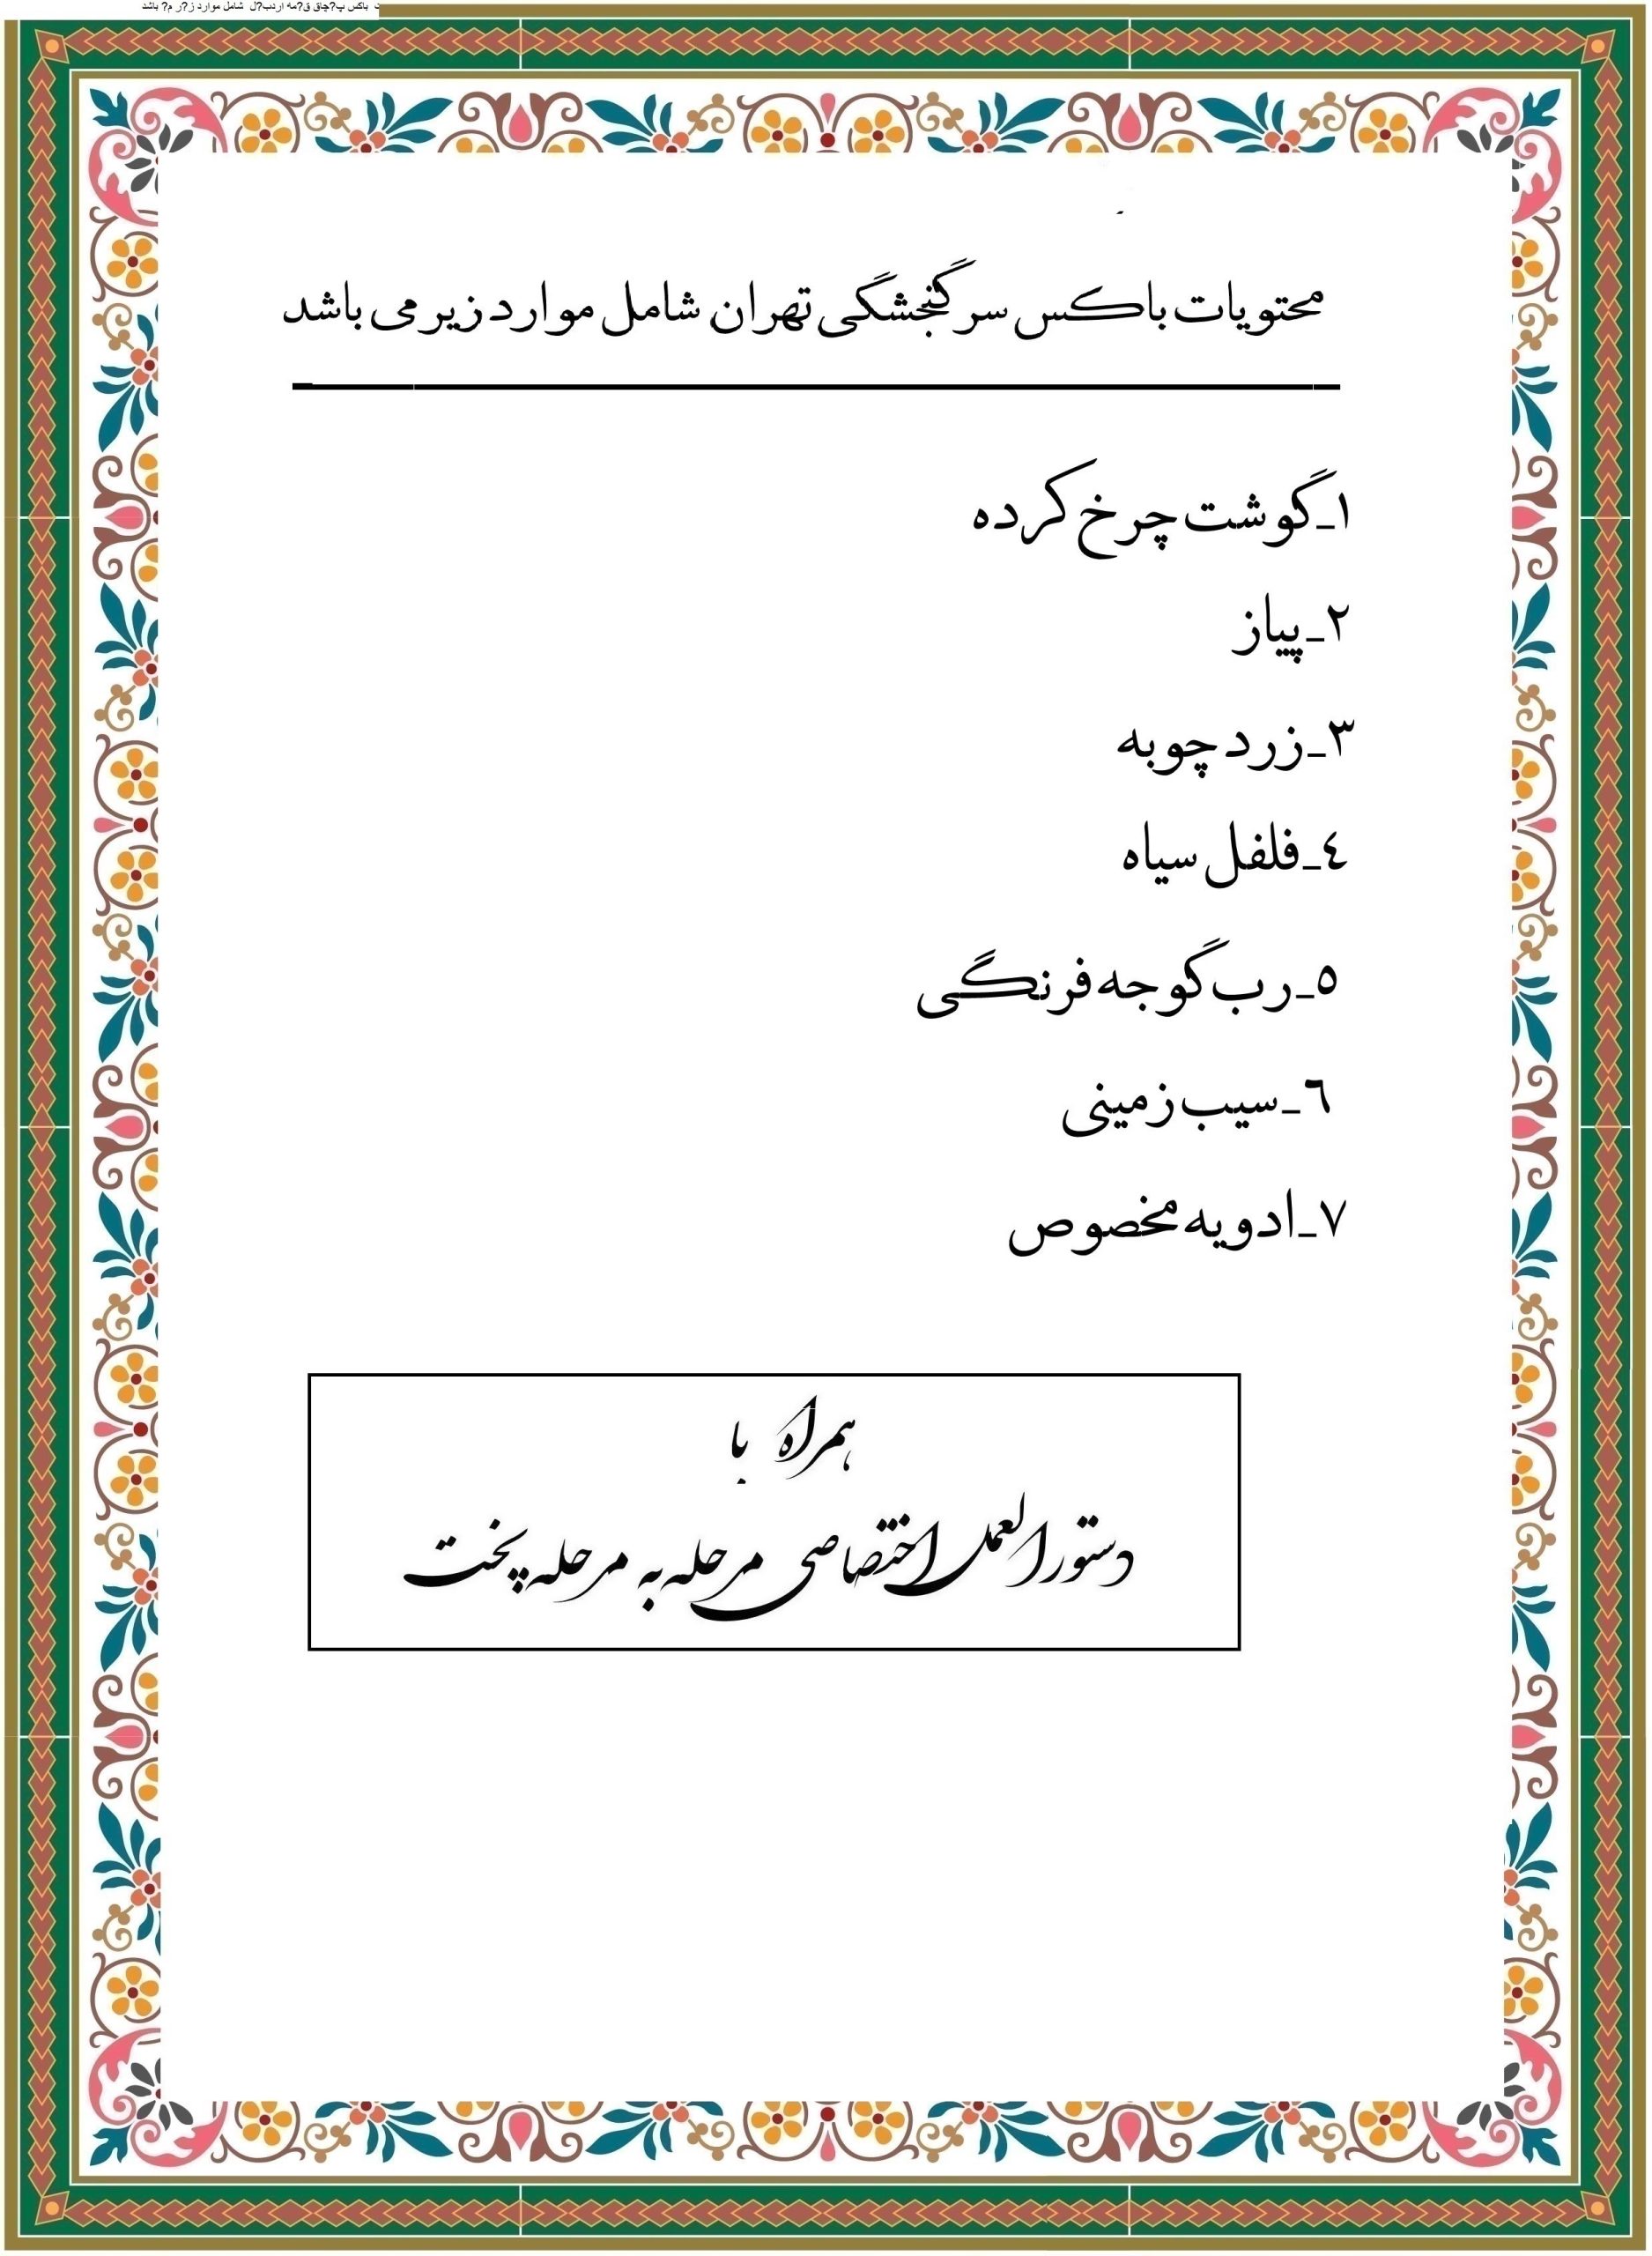 باکس پ?چاق ق?مه اردب?ل شامل موارد ز?ر م? باشد
محتویات باکس سرگنجشگی تهران شامل موارد زیر می باشد
١_گوشت چرخ کرده
٢_پیاز
٣_زرد چوبه
٤_فلفل سیاه
٥_رب گوجه فرنگی
٦_سیب زمینی
٧_ادویه مخصوص
همراه با
دستورالعمل اختصاصی مرحله به مرحله پخت